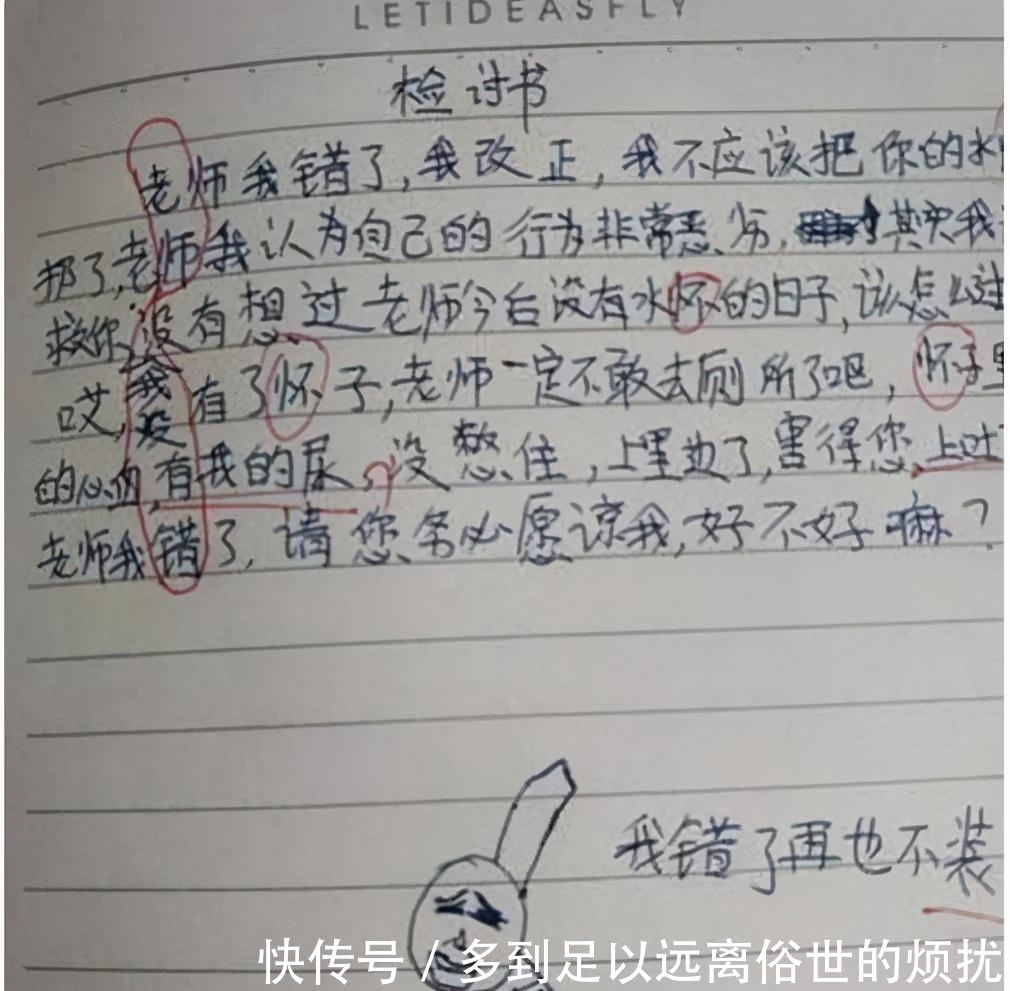 LETIDEASFLY
检讨书
老师我错了,我改正,我不应该把你的水
扔了,老师我认为自己的行为非常恶劣,其实我
救你没有想过老师今后没有水怀的日子,该怎么过
哎,我没有了怀子,老师一定不敢去厕所了吧,怀子里
的心血,有我的尿,没憋住,上里边了,害得您上吐
老师我错了,请您务必愿谅我,好不好嘛?
我错了再也不装
快传号 / 多到足以远离俗世的烦扰